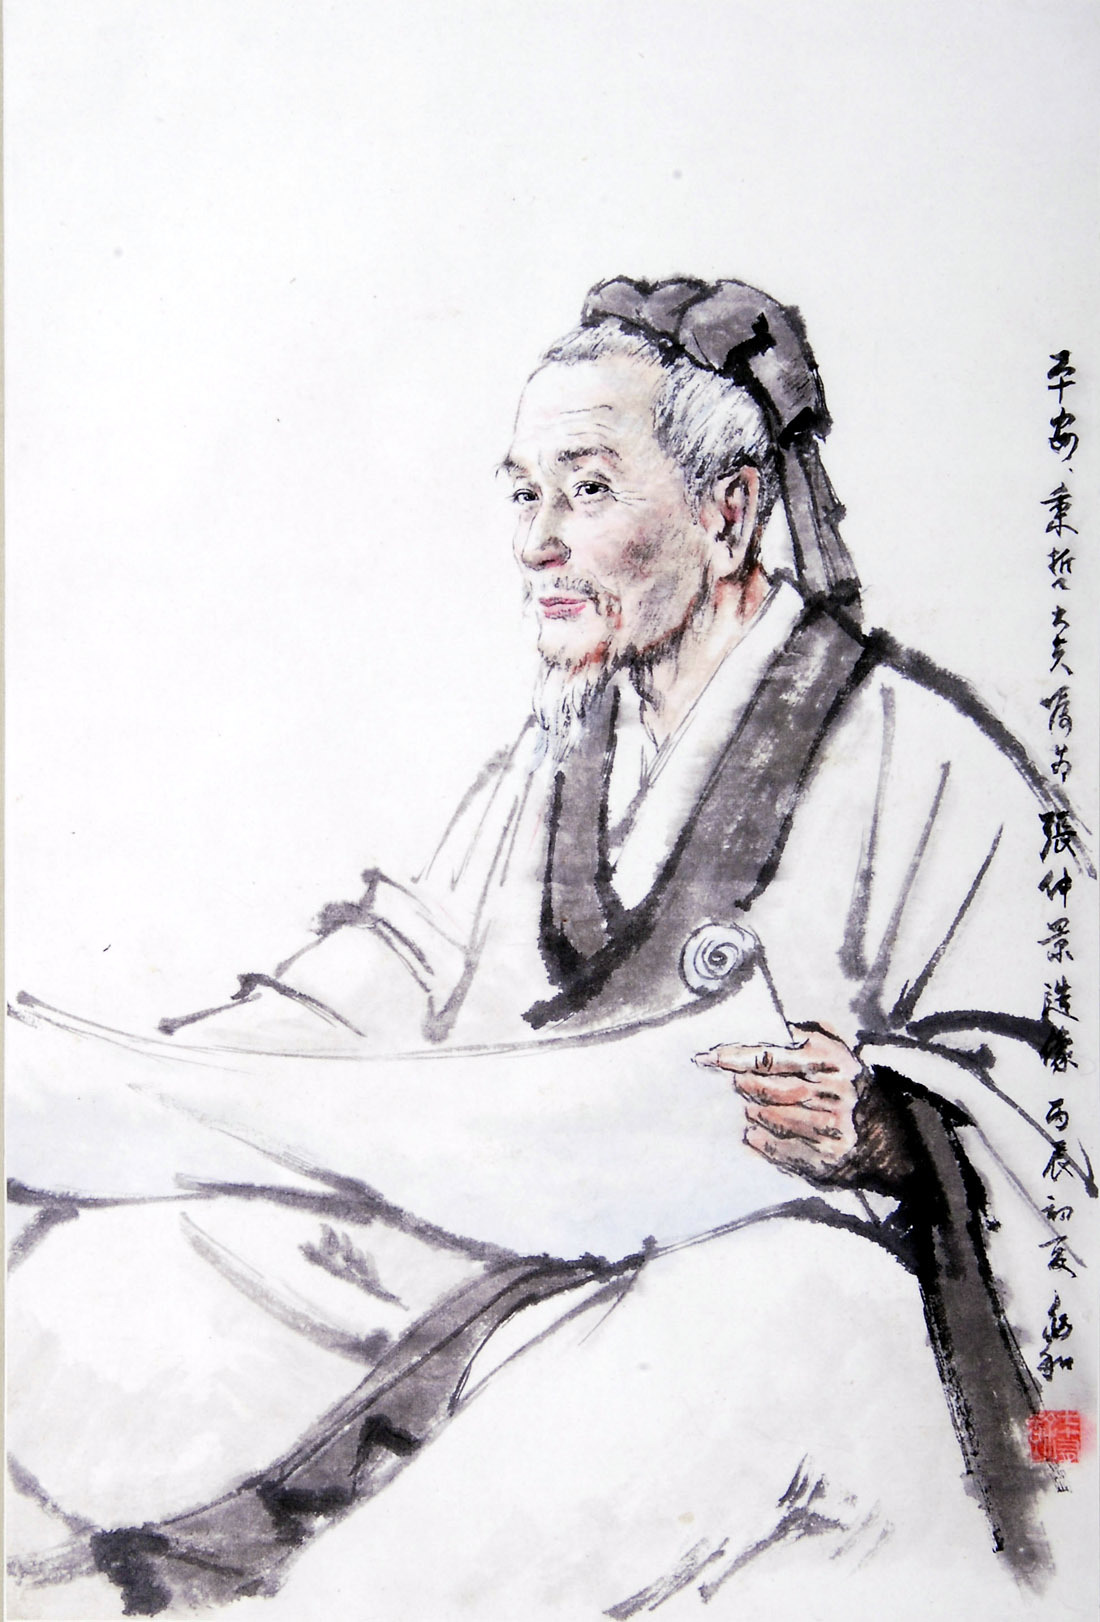 平安、秉哲大夫嘱为張仲景造像 丙辰初夏 兆和